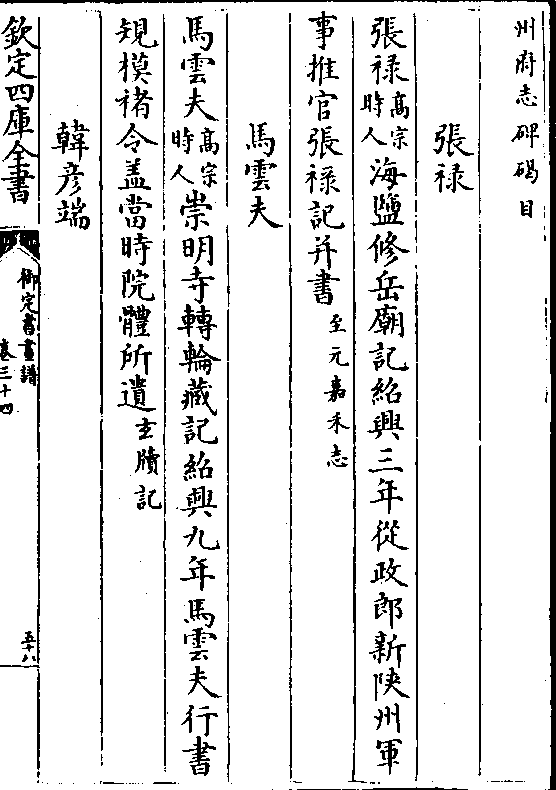 州府志碑碣目
張祿
張祿高宗時人海鹽修岳廟記紹興三年從政郎新陝州軍
事推官張祿記并書至元嘉禾志
馬雲夫
馬雲夫高宗時人崇明寺轉輪藏記紹興九年馬雲夫行書
䂓模褚令盖當時院體所遺玄牘記
韓彦端
欽定四庫全書
御定書畫譜
卷三十四
五十八